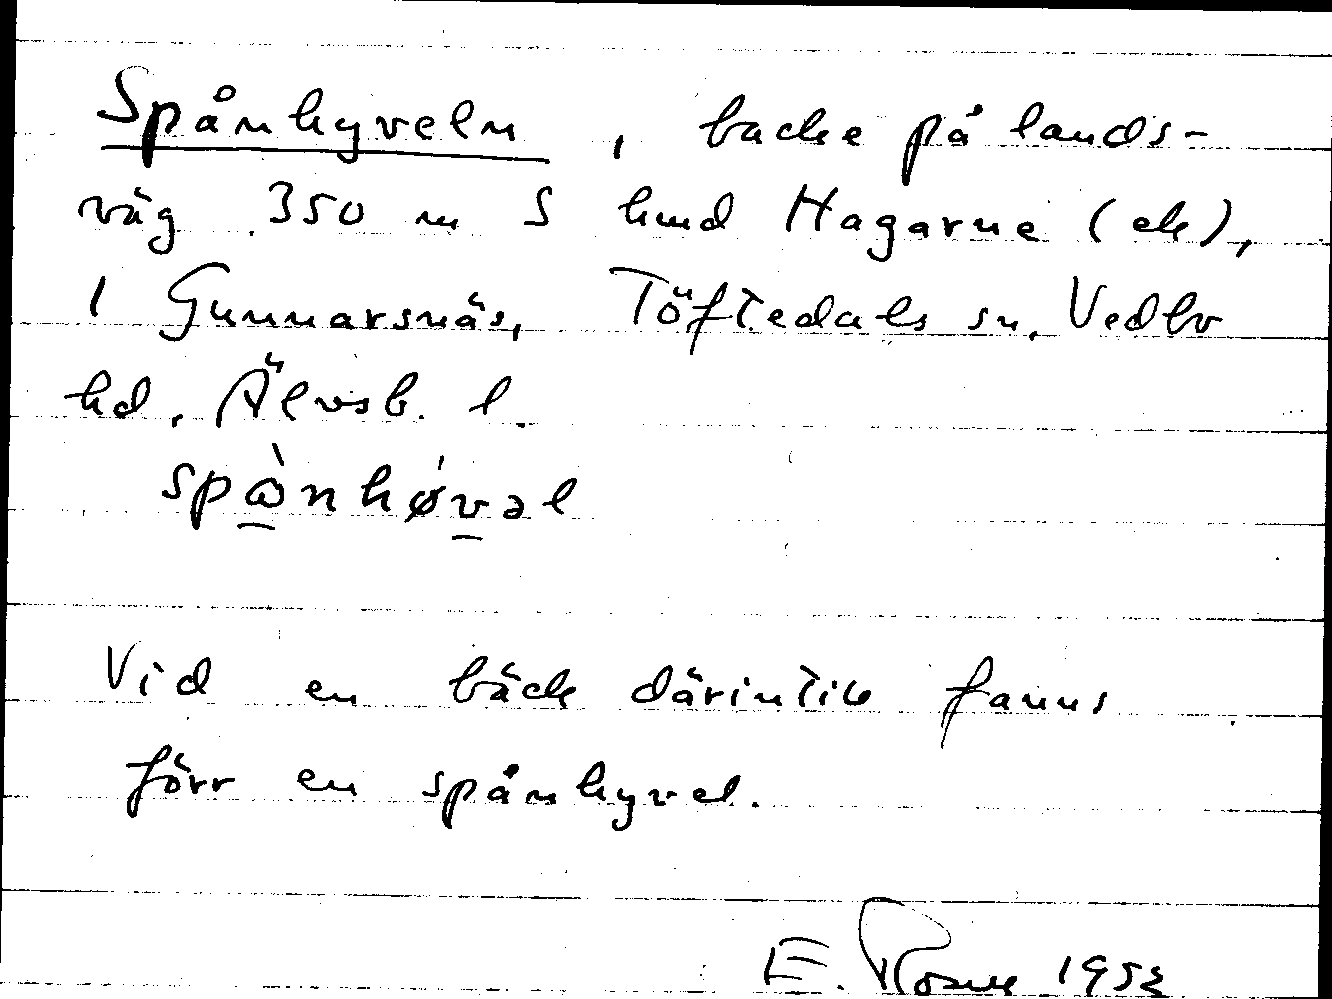 Spånhyveln, backe på lands-
väg 350 m S hmd Hagarne (ek),
1 Gunnarsnäs, Töftedals sn, Vedbo
hd, Älvsb. l.
spɷ̀nhǿvəl
Vid en bäck därintill fanns
förr en spånhyvel.
E. 1952